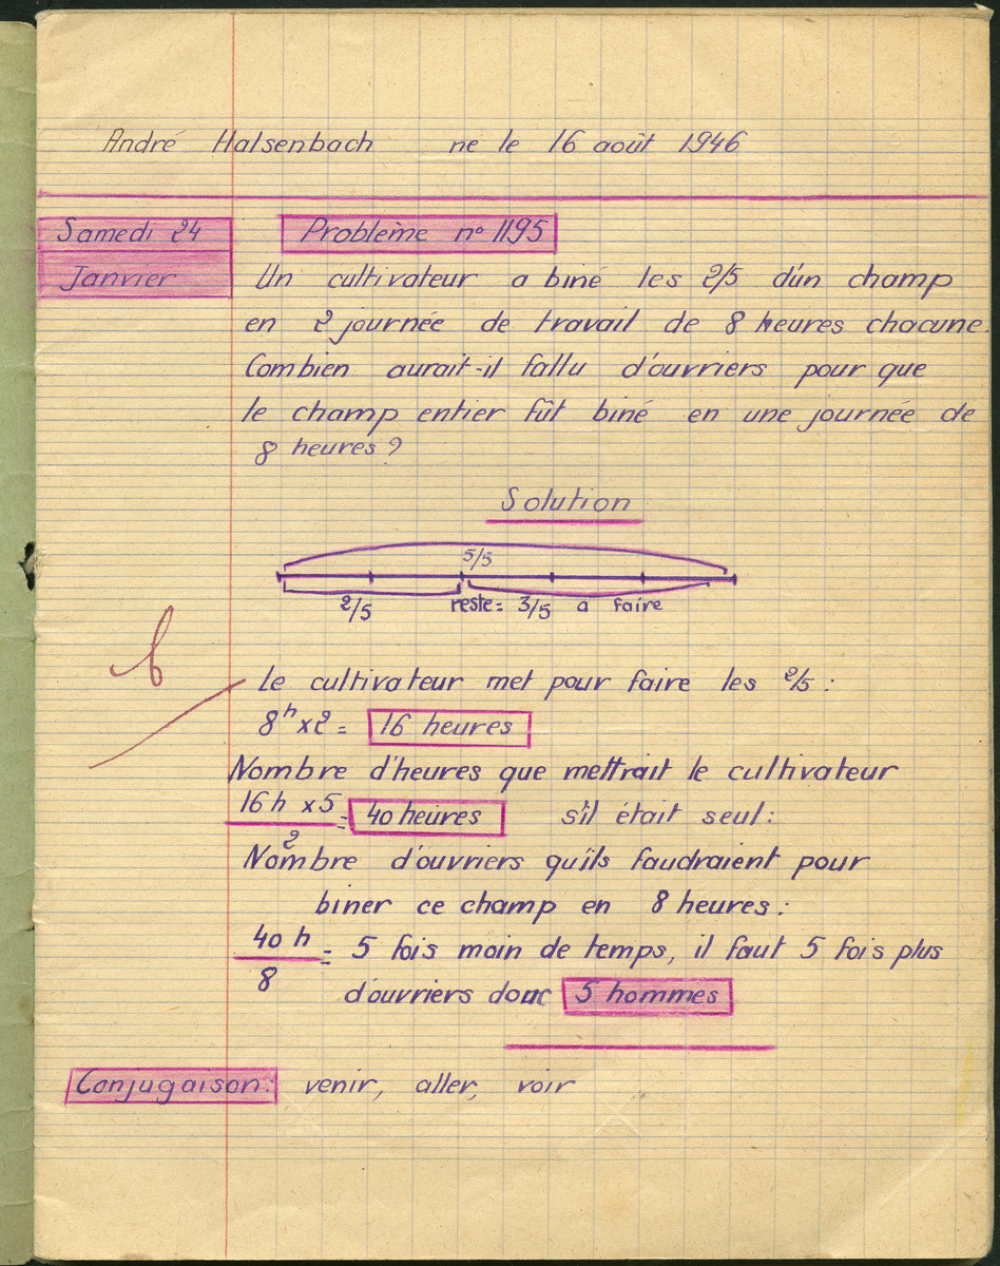 André Halsenbach ne le 16 août 1946
Samedi 24
Janvier
Problème n° 1195
Un cultivateur a biné les 2/5 d'un champ
en 2 journée de travail de 8 heures chacune.
Combien aurait-il fallu d'ouvriers pour que
le champ entier fût biné en une journée de
8 heures ?
Solution
5/5
2/5 reste = 3/5 a faire
b
Le cultivateur met pour faire les 2/5 :
8h x 2 = 16 heures
Nombre d'heures que mettrait le cultivateur
16 h x 5 / 2 = 40 heures s'il était seul :
Nombre d'ouvriers qu'ils faudraient pour
biner ce champ en 8 heures :
40 h / 8 = 5 fois moin de temps, il faut 5 fois plus
d'ouvriers donc 5 hommes
Conjugaison : venir, aller, voir